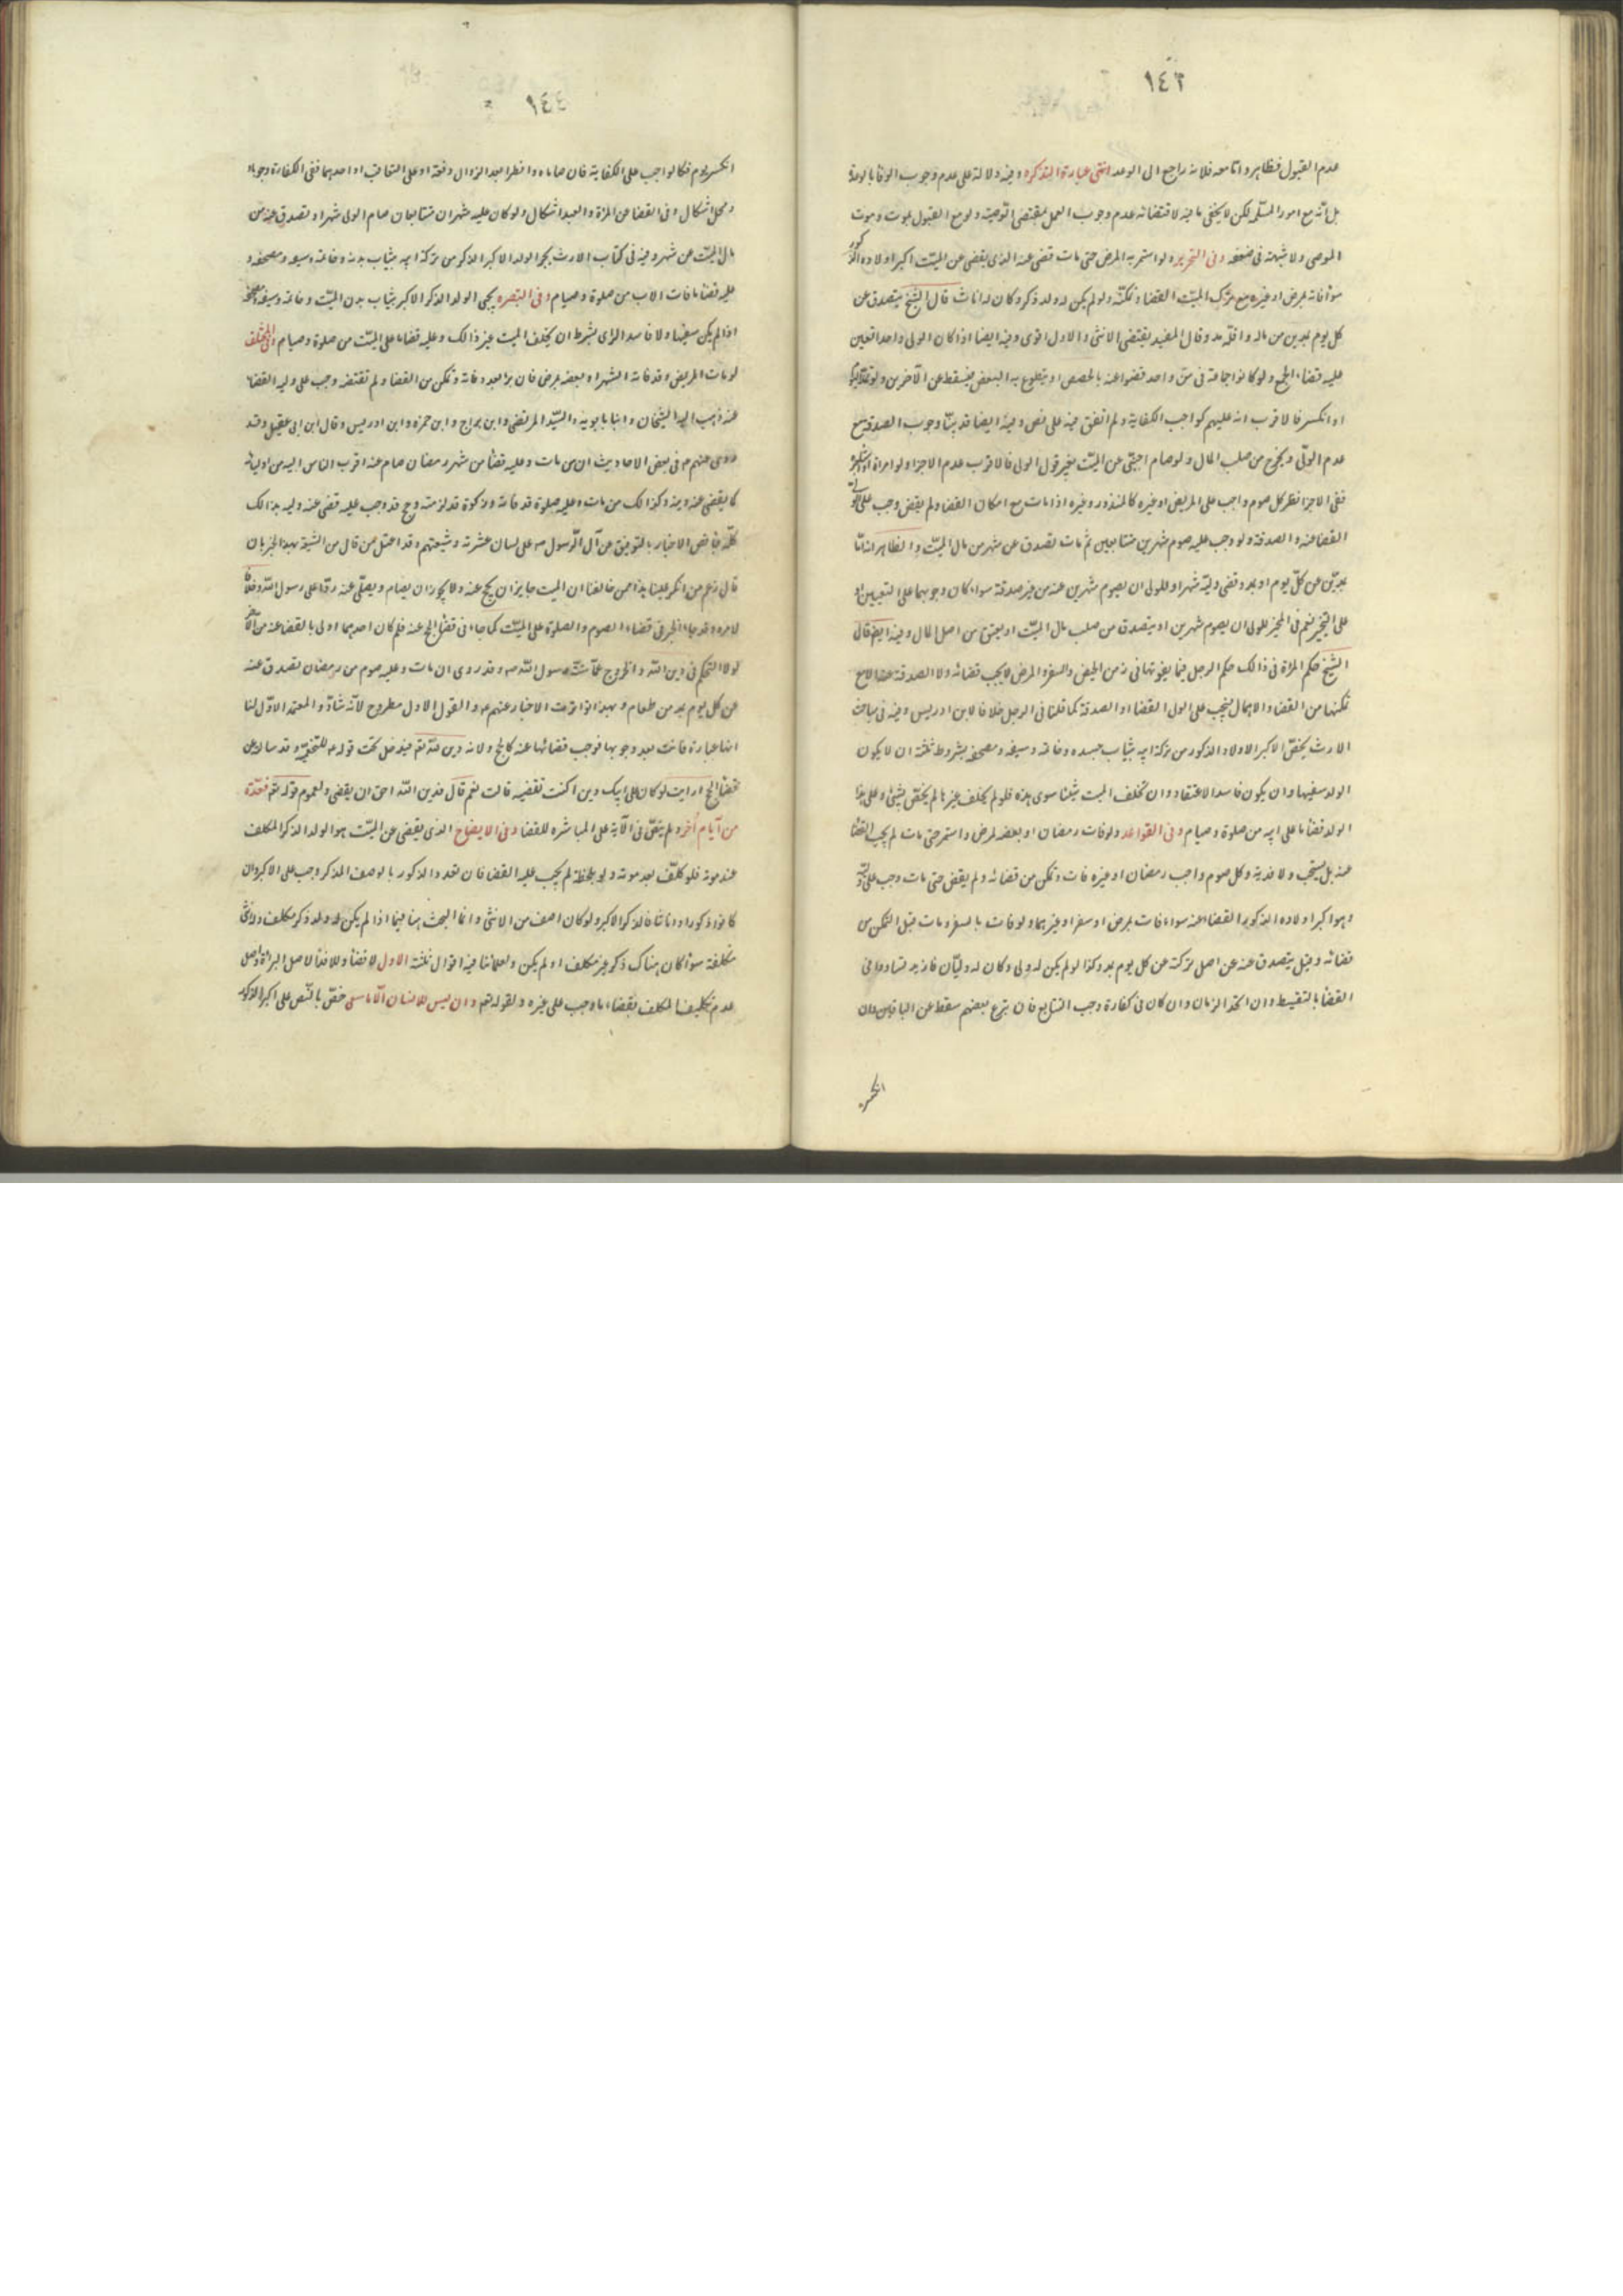 ١٤٣
عدم القبول فظاهر واما معه فلانه راجع الى الوعد انتهى عبارة التذكره وفيه دلالة على عدم وجوب الوفا بالوعد
بل انه مع امور المسلم لكن لا يخفى ما فيه لاقتضائه عدم وجوب العمل بمقتضى الوصية ولو مع القبول بموت وموت
الموصى ولا شبهة فى ضعفه وفى التحرير ولو استمر به المرض حتى مات قضى عنه الذى يقضى عن الميت اكبر اولاده الذكور
ما فاته بمرض او غيره مع ترك الميت القضا وتمكنه ولو لم يكن له ولد ذكر وكان له اناث قال الشيخ يتصدق عن
كل يوم بمدين من ماله واقله مد وقال المفيد يقتضى الانثى والاول اقوى وفيه ايضا اذا كان الولى واحدا تعين
عليه قضاء الجميع ولو كانوا جماعة فى سن واحد قضوا عنه بالحصص او يتطوع به البعض فيسقط عن الآخرين ولو
او انكسر فالاقرب انه عليهم كواجب الكفاية ولم اتفق فيه على نص وفيه ايضا قد بينا وجوب الصدقة مع
عدم الولى ويخرج من صلب المال ولو صام اجنبى عن الميت بغير قول الولى فالاقرب عدم الاجزا ولو امره او استأجره
ففى الاجزا نظر كل صوم واجب على المريض او غيره كالمنذور وغيره اذا مات مع امكان القضا ولم يقض وجب على الولى
القضا عنه والصدقة ولو وجب عليه صوم شهرين متتابعين ثم مات تصدق عن شهر من مال الميت والظاهر انه اما
بمدين عن كل يوم او بمد وقضى وليه شهرا وللولى ان يصوم شهرين عنه من غير صدقة سواء كان وجوبهما على التعيين او
على التخيير نعم فى المخير للولى ان يصوم شهرين او يتصدق من صلب مال الميت او يعتق من اصل المال وفيه ايضا قال
الشيخ حكم المراة فى ذالك حكم الرجل فيما يفوتها فى زمن الحيض والسفر والمرض لا يجب قضائه ولا الصدقة عنها الا مع
تمكنها من القضا والاهمال فيجب على الولى القضا او الصدقة كما قلنا فى الرجل خلافا لابن ادريس وفيه فى مباحث
الارث يختص الاكبر الاولاد الذكور من تركة ابيه بثياب جسده وخاتمه وسيفه ومصحفه بشروط ثلثة ان لا يكون
الولد سفيها وان يكون فاسد الاعتقاد وان تخلف الميت شيئا سوى هذه فلو لم يخلف غيرها لم يختص بشيئ وعلى هذا
الولد قضا ما على ابيه من صلوة وصيام وفى القواعد ولو فات رمضان او بعضه لمرض واستمر حتى مات لم يجب القضا
عنه بل يستحب ولا فدية وكل صوم واجب رمضان او غيره فات وتمكن من قضائه ولم يقض حتى مات وجب على وليه
وهو اكبر اولاده الذكور القضا عنه سواء فات بمرض او سفر او غيرهما ولو فات بالسفر ومات قبل التمكن من
قضائه وقيل يتصدق عنه عن اصل تركته عن كل يوم بمد وكذا لو لم يكن له ولى وكان له وليان فازيد تساووا فى
القضا بالتقسيط وان اتحد الزمان وان كان فى كفارة وجب التتابع فان تبرع بعضهم سقط عن الباقين وان
انكسر
١٤٤
انكسر يوم فكالواجب على الكفاية فان صاماه وافطرا بعد الزوال دفعة او على التعاقب او احدهما ففى الكفارة وجوبا و
ومحلا اشكال وفى القضا عن المراة والعبد اشكال ولو كان عليه شهران متتابعان صام الولى شهرا وتصدق عنه من
مال الميت عن شهر وفيه فى كتاب الارث يحبى الولد الاكبر الذكر من تركة ابيه بثياب بدنه وخاتمه وسيفه ومصحفه و
عليه قضا ما فات الاب من صلوة وصيام وفى التبصره يحبى الولد الذكر الاكبر بثياب بدن الميت وخاتمه وسيفه ومصحفه
اذا لم يكن سفيها ولا فاسد الراى بشرط ان يخلف الميت غير ذالك وعليه قضا ما على الميت من صلوة وصيام وفى المختلف
لو مات المريض وقد فاته الشهر او بعضه بمرض فان برا بعد وفاته وتمكن من القضا ولم يقضه وجب على وليه القضا
عنه ذهب اليه الشيخان وابنا بابويه والسيد المرتضى وابن براج وابن حمزه وابن ادريس وقال ابن ابى عقيل وقد
روى عنهم ع فى بعض الاحاديث ان من مات وعليه قضا من شهر رمضان صام عنه اقرب الناس اليه من اوليائه
كما يقضى عنه دينه وكذالك من مات وعليه صلوة قد فاته وزكوة قد لزمته وحج قد وجب عليه قضى عنه وليه بذالك
كله جا نص الاخبار بالتوقيف عن آل الرسول ص على لسان عترته وشيعتهم وقد اعتل من قال من الشيعة بهذا الخبر بان
قال زعم من انكر علينا هذا من خالفنا ان الميت جايز ان يحج عنه ولا يجوز ان يصام ويصلى عنه ردا على رسول الله وخلافا
لامره وقد جاء الخبر فى قضاء الصوم والصلوة على الميت كما جاء فى قضا الحج عنه فلم كان احدهما اولى بالقضا عنه من الآخر
لولا التحكم فى دين الله والخروج عما سنه رسول الله ص وقد روى ان مات وعليه صوم من رمضان تصدق عنه
عن كل يوم بمد من طعام وبهذا تواترت الاخبار عنهم ع والقول الاول مطروح لانه شاذ والمعتمد الاول لنا
انها عبارة فاتت بعد وجوبها فوجب قضائها عنه كالحج ولانه دين لله تعم فيدخل تحت قوله ع للخثعمية وقد سالته عن
قضا الحج ارايت لو كان على ابيك دين اكنت تقضيه قالت نعم قال فدين الله احق ان يقضى ولعموم قوله تعم فعدة
من أيام أخر ولم ينص فى الآية على المباشره للقضا وفى الايضاح الذى يقضى عن الميت هو الولد الذكر المكلف
عند موته فلو كلف بعد موته ولو بلحظة لم يجب عليه القضا فان تعدد الذكور بالوصف المذكر وجب على الاكبر وان
كانوا ذكورا واناثا فالذكر الاكبر ولو كان اصغر من الانثى وانما البحث هنا فيما اذا لم يكن له ولد ذكر مكلف وانثى
مكلفة سواء كان هناك ذكر غير مكلف او لم يكن ولعلمائنا فيه اقوال ثلثة الاول لا قضا ولا فدا لاصل البراءة ولاصل
عدم تكليف المكلف بقضاء ما وجب على غيره ولقوله تعم وان ليس للانسان الا ما سعى خص بالنص على اكبر الذكور